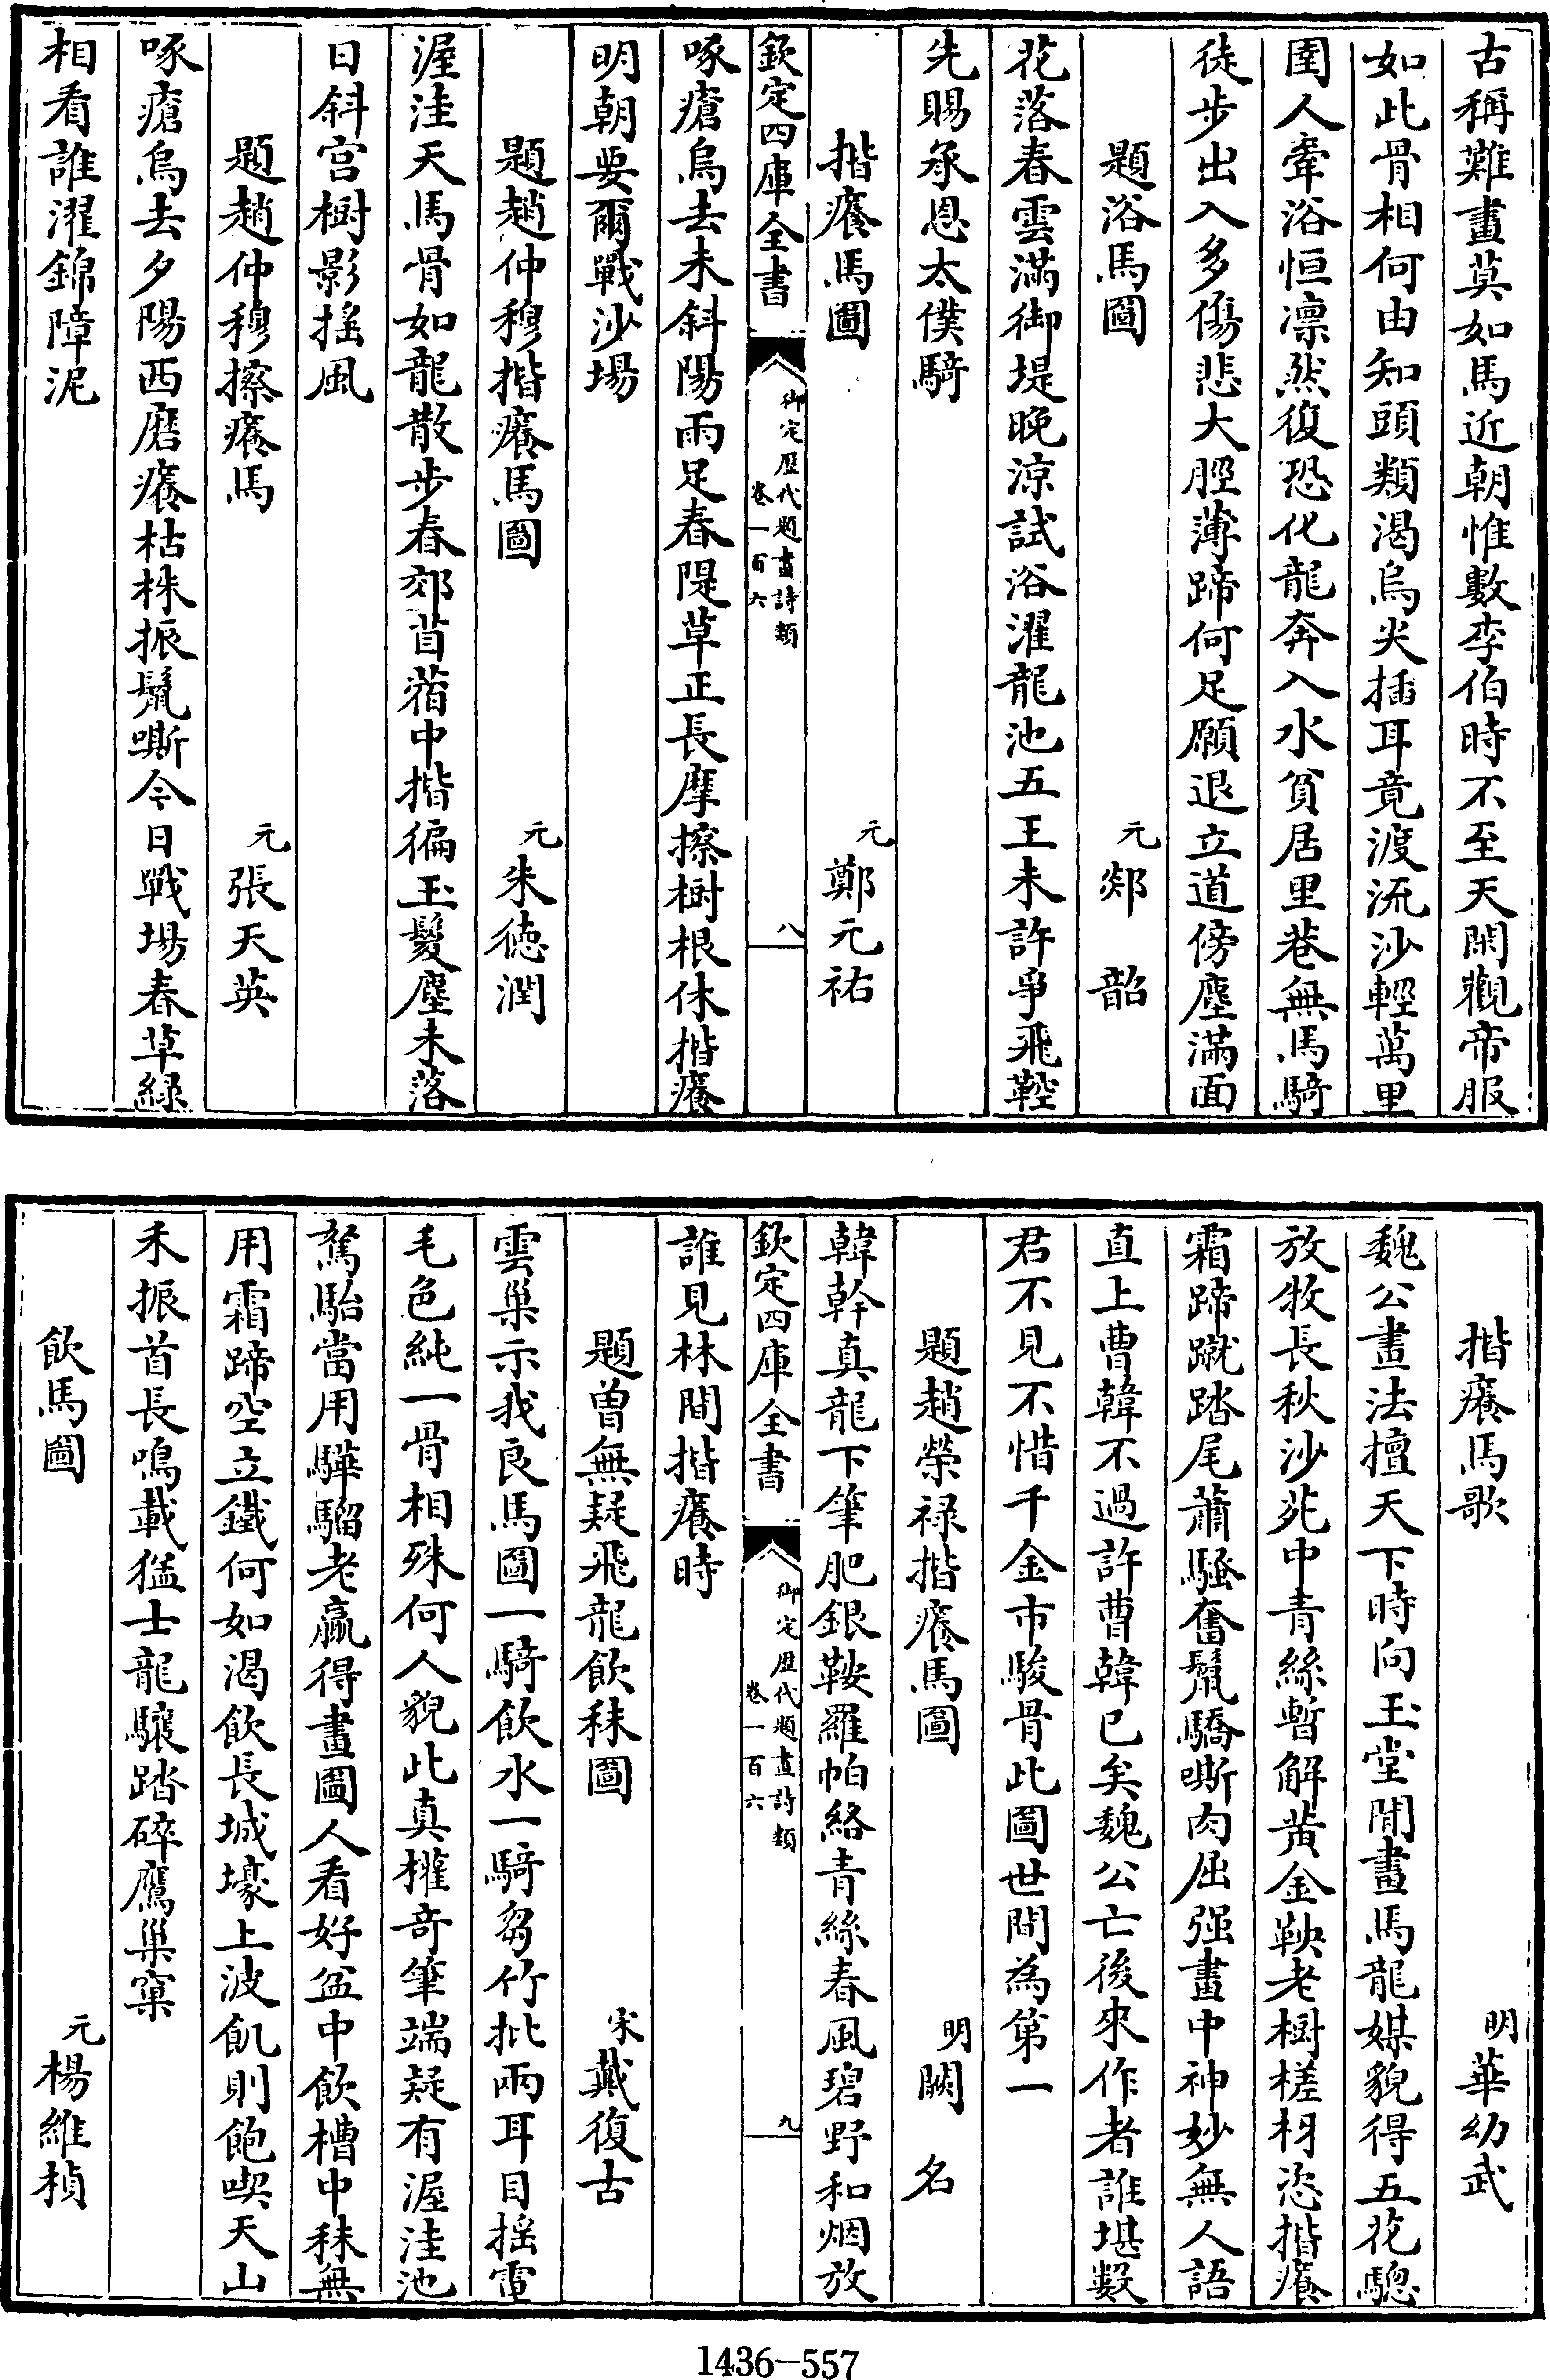 古稱難畫莫如馬近朝惟數李伯時不至天閑觀帝服
如此骨相何由知頭類渴烏尖插耳竟渡流沙輕萬里
圉人牽浴恒凛然復恐化龍奔入水貧居里巷無馬騎
徒步出入多傷悲大脛薄蹄何足願退立道傍塵滿面
題浴馬圖 元郯韶
花落春雲滿御堤晚涼試浴濯龍池五王未許爭飛鞚
先賜承恩太僕騎
揩癢馬圖 元鄭元祐
欽定四庫全書 御定歴代題畫詩類 卷一百六 八
啄瘡烏去未斜陽雨足春隄草正長摩擦樹根休揩癢
明朝要爾戰沙場
題趙仲穆揩癢馬圖 元朱德潤
渥洼天馬骨如龍散步春郊苜蓿中揩徧玉鬉塵未落
日斜宫樹影揺風
題趙仲穆擦癢馬 元張天英
啄瘡烏去夕陽西磨癢枯株振鬛嘶今日戰場春草緑
相看誰濯錦障泥
揩癢馬歌 明華幼武
魏公畫法擅天下時向玉堂閒畫馬龍媒貌得五花驄
放牧長秋沙苑中青絲暫解黄金鞅老樹槎枒恣揩癢
霜蹄蹴踏尾蕭騷奮鬛驕嘶肉屈强畫中神妙無人語
直上曹韓不過許曹韓已矣魏公亡後來作者誰堪數
君不見不惜千金市駿骨此圖世間為第一
題趙榮禄揩癢馬圖 明闕名
韓幹真龍下筆肥銀鞍羅帕絡青絲春風碧野和烟放
欽定四庫全書 御定歴代題畫詩類 卷一百六 九
誰見林間揩癢時
題曽無疑飛龍飲秣圖 宋戴復古
雲巢示我良馬圖一騎飲水一騎芻竹批兩耳目揺電
毛色純一骨相殊何人貌此真權奇筆端疑有渥洼池
駑駘當用驊騮老羸得畫圖人看好盆中飲槽中秣無
用霜蹄空立鐵何如渴飲長城壕上波飢則飽喫天山
禾振首長鳴載猛士龍驤踏碎鷹巢窠
飲馬圖 元楊維楨
1436-557